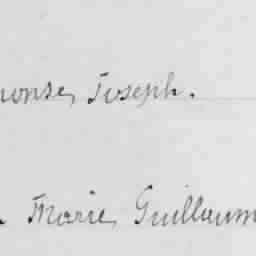 Joseph.
Marie Guillaum